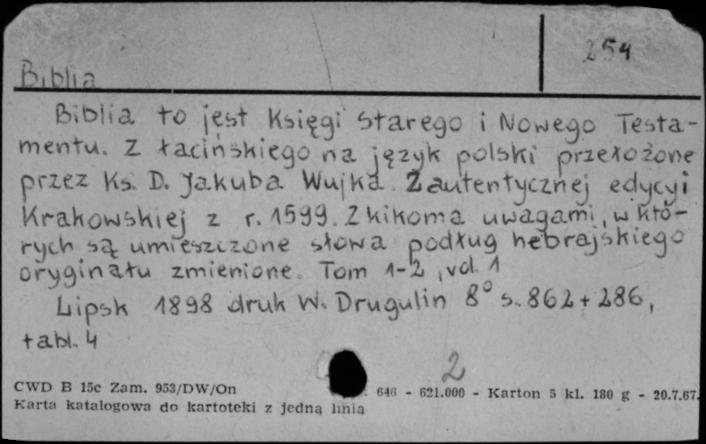 254
Biblia
Biblia to jest Księgi Starego i Nowego Testa-
mentu. Z łacińskiego na język polski przełożone
przez Ks. D. Jakuba Wujka. Z autentycznej edycyi
Krakowskiej z r. 1599. Z kikoma uwagami, w któ-
rych są umieszczone słowa podług hebrajskiego
oryginału zmienione. Tom 1-2, vol. 1
Lipsk 1898 druk W. Drugulin 8° s. 862 + 286,
tabl. 4
2
CWD B 15c Zam. 953/DW/On 646 - 621.000 - Karton 5 kl. 180 g - 20.7.67.
Karta katalogowa do kartoteki z jedną linią